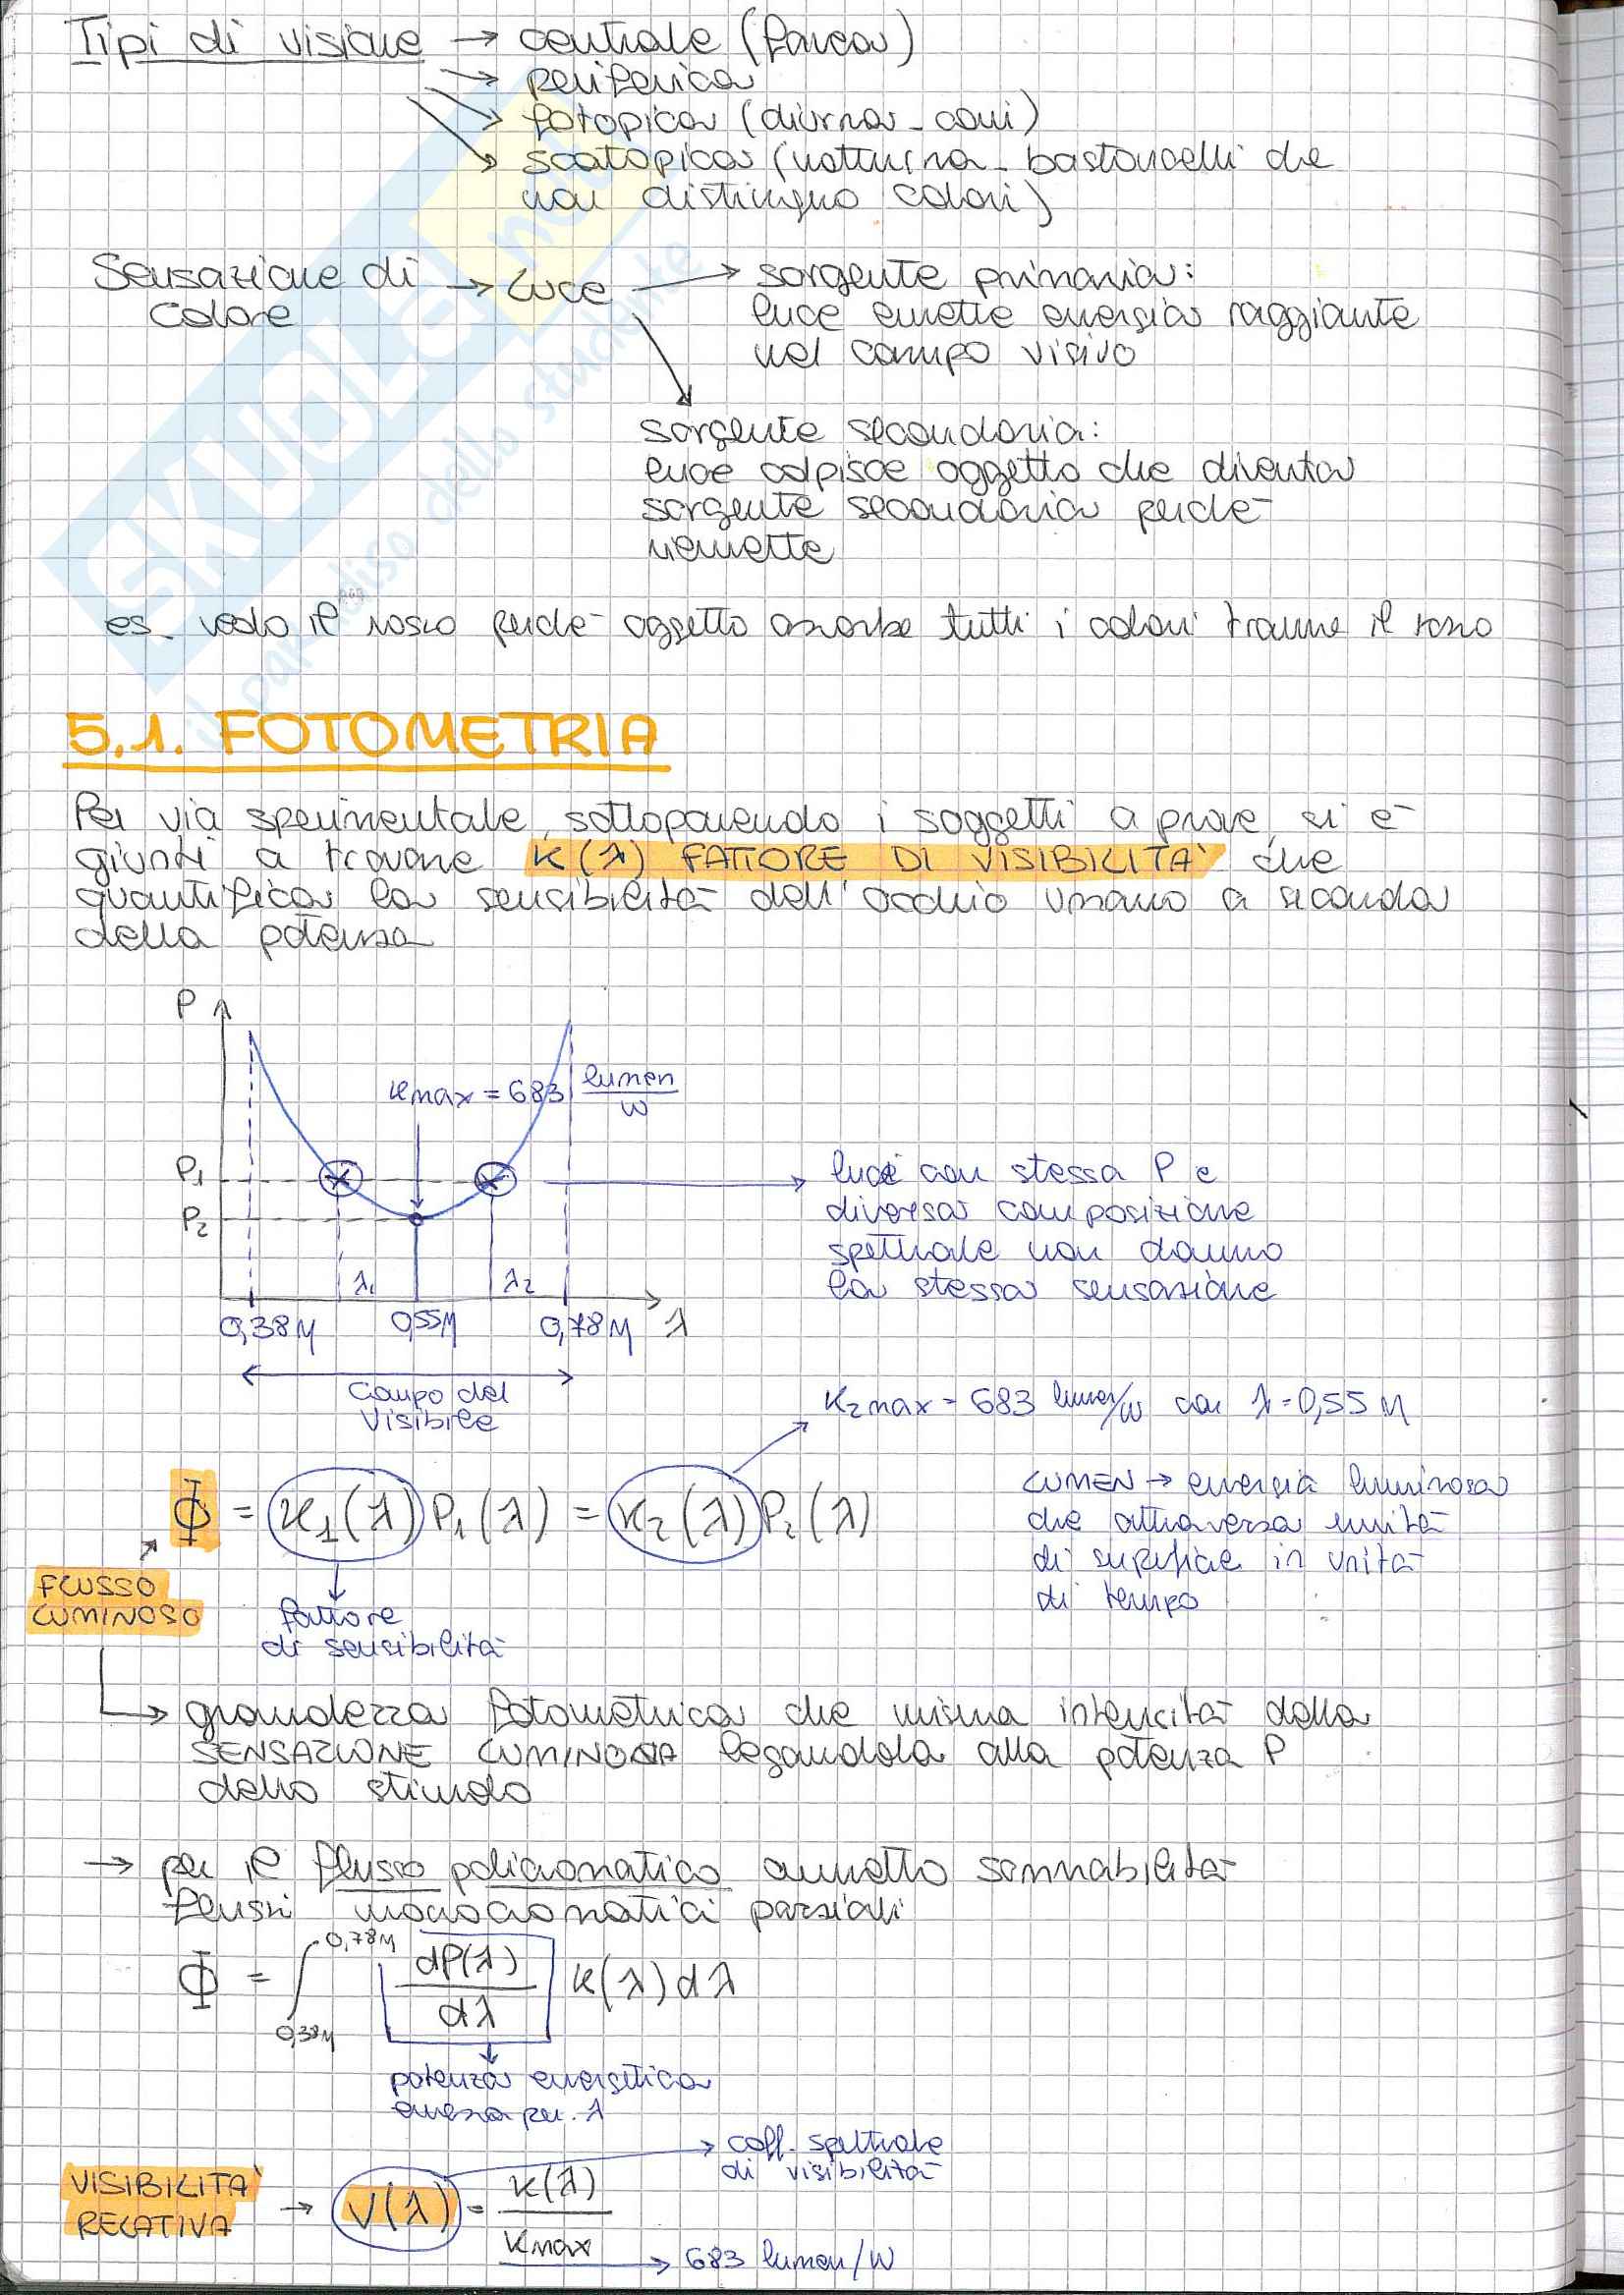 Tipi di visione → centrale (fovea)
→ periferica
→ fotopica (diurna - coni)
→ scotopica (notturna - bastoncelli che
non distinguo colori)
Sensazione di colore → Luce → sorgente primaria:
luce emette energia raggiante
nel campo visivo
sorgente secondaria:
luce colpisce oggetto che diventa
sorgente secondaria perché
riemette
es. vedo il rosso perché oggetto assorbe tutti i colori tranne il rosso
5.1. FOTOMETRIA
Per via sperimentale, sottoponendo i soggetti a prove, si è
giunti a trovare K(λ) FATTORE DI VISIBILITÀ che
quantifica la sensibilità dell'occhio umano a seconda
della potenza
P
Kmax = 683 lumen/W
P1
P2
luci con stessa P e
diversa composizione
spettrale non danno
la stessa sensazione
λ1 λ2
0,38 μ 0,55 μ 0,78 μ λ
Campo del
visibile
K2max = 683 lumen/W con λ = 0,55 μ
Φ = K1(λ) P1(λ) = K2(λ) P2(λ)
LUMEN → energia luminosa
che attraversa unità
di superficie in unità
di tempo
FLUSSO
LUMINOSO
fattore
di sensibilità
→ grandezza fotometrica che misura intensità della
SENSAZIONE LUMINOSA legandola alla potenza P
dello stimolo
→ per il flusso policromatico ammetto sommabilità
flussi monocromatici parziali
Φ = ∫ 0,38μ 0,78μ dP(λ)/dλ K(λ) dλ
potenza energetica
emessa per λ
coff. spettrale
di visibilità
VISIBILITÀ
RELATIVA → V(λ) = K(λ)/Kmax → 683 lumen/W
SKUOLA.net
il paradiso dello studente